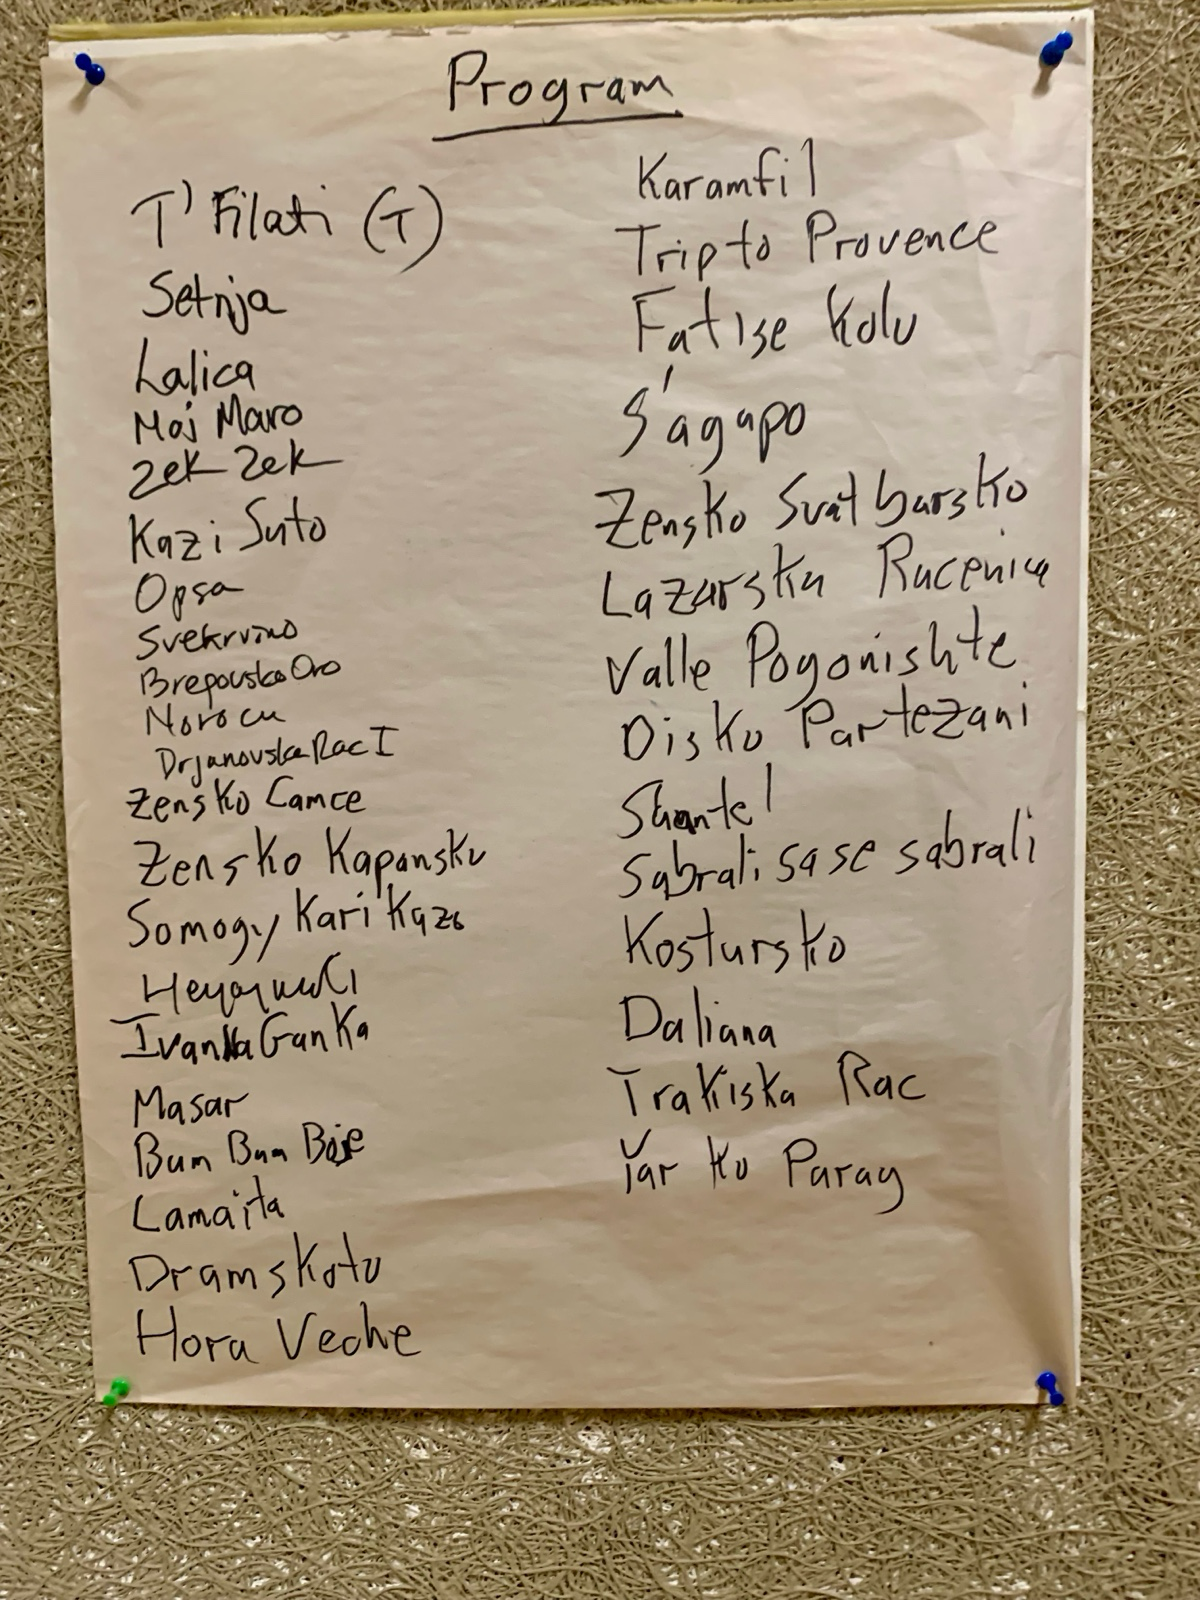 Program
T' Filati (T)
Setnja
Lalica
Moj Maro
Zek Zek
Kazi Suto
Opsa
Svekrvino
Brepovska Oro
Norocu
Drjanovska Rac I
Zensko Camce
Zensko Kapansko
Somogy Kari Kazo
Ivanka Ganka
Masar
Bum Bum Boje
Lamaita
Dramskoto
Hora Veche
Karamfil
Trip to Provence
Fatise Kolo
S'agapo
Zensko Svatbarsko
Lazarska Racenica
Valle Pogonishte
Disko Partezani
Shantel
Sabrali sa se sabrali
Kostursko
Daliana
Trakiska Rac
Iar ku Parag